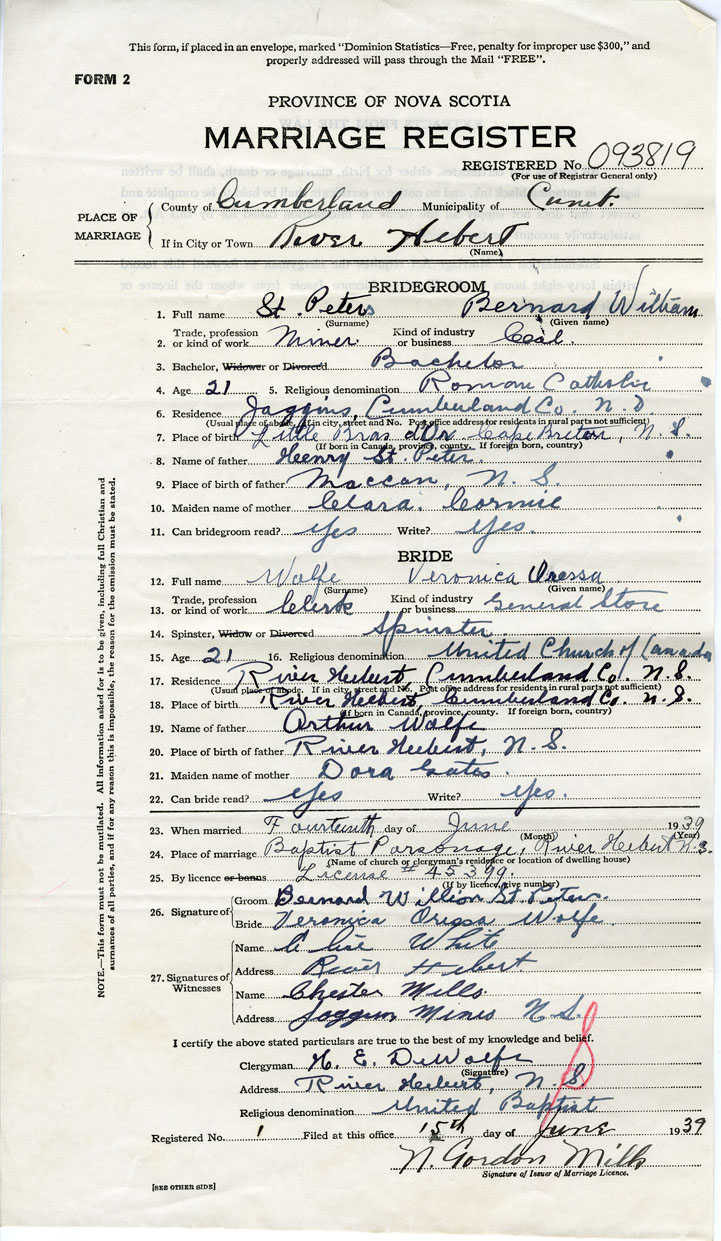 This form, if placed in an envelope, marked "Dominion Statistics—Free, penalty for improper use $300," and
properly addressed will pass through the Mail "FREE".
FORM 2
PROVINCE OF NOVA SCOTIA
MARRIAGE REGISTER
REGISTERED No. 093819
(For use of Registrar General only)
PLACE OF MARRIAGE
County of Cumberland Municipality of Cumb.
If in City or Town River Hebert
(Name)
BRIDEGROOM
1. Full name St. Peters Bernard William
(Surname) (Given name)
2. Trade, profession or kind of work Miner Kind of industry or business Coal.
3. Bachelor, Widower or Divorced Bachelor
4. Age 21 5. Religious denomination Romon Catholic
6. Residence Joggins, Cumberland Co. N.S.
(Usual place of abode, if in city, street and No. Post office address for residents in rural parts not sufficient)
7. Place of birth Little Bras d'Or Cape Breton, N.S.
(If born in Canada, province, county. If foreign born, country)
8. Name of father Henry St. Peter
9. Place of birth of father Maccan, N. S.
10. Maiden name of mother Clara. Cormie
11. Can bridegroom read? Yes Write? Yes.
BRIDE
12. Full name Wolfe Veronica Oressa
(Surname) (Given name)
13. Trade, profession or kind of work Clerk Kind of industry or business General Store
14. Spinster, Widow or Divorced Spinster
15. Age 21 16. Religious denomination United Church of Canada
17. Residence River Hebert, Cumberland Co. N.S.
(Usual place of abode. If in city, street and No. Post office address for residents in rural parts not sufficient)
18. Place of birth River Hebert, Cumberland Co. N.S.
(If born in Canada, province, county. If foreign born, country)
19. Name of father Arthur Wolfe
20. Place of birth of father River Hebert, N.S.
21. Maiden name of mother Dora Gates.
22. Can bride read? Yes Write? Yes.
23. When married Fourteenth day of June 1939
(Month) (Year)
24. Place of marriage Baptist Parsonage, River Hebert N.S.
(Name of church or clergyman's residence or location of dwelling house)
25. By licence or banns License # 45399.
(If by licence, give number)
26. Signature of Groom Bernard Willion St. Peter.
Bride Veronica Orissa Wolfe
27. Signatures of Witnesses
Name White
Address River Hebert
Name Chester Mills
Address Joggin Mines N.S.
I certify the above stated particulars are true to the best of my knowledge and belief.
Clergyman H. E. DeWolfe
(Signature)
Address River Hebert, N.S.
Religious denomination United Baptist
Registered No. 1 Filed at this office 15th day of June 1939
N. Gordon Mills
Signature of Issuer of Marriage Licence.
[SEE OTHER SIDE]
NOTE.—This form must not be mutilated. All information asked for is to be given, including full Christian and
surnames of all parties, and if for any reason this is impossible, the reason for the omission must be stated.